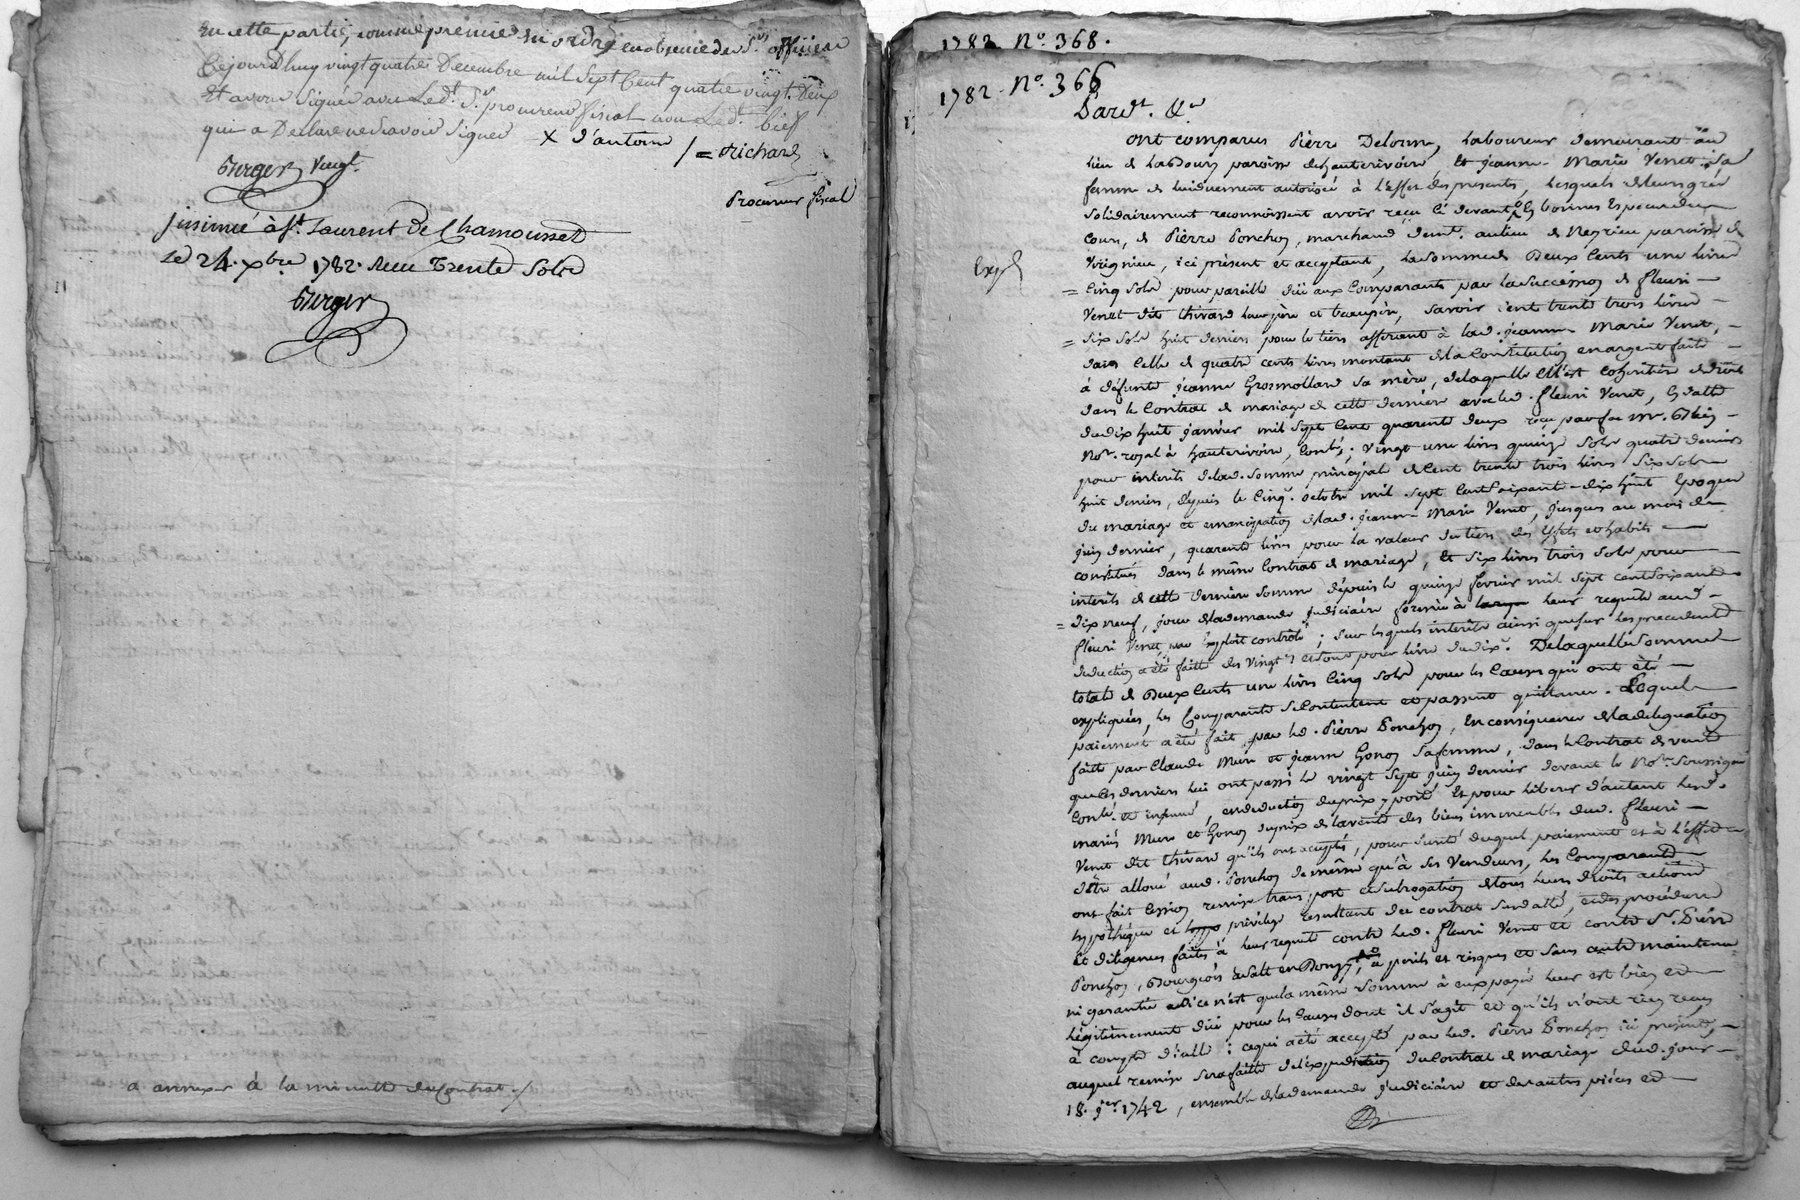 En cette partie, comme premier en ordre en absence des Srs officiers
Cejourdhuy vingt quatre Decembre mil Sept Cent quatre vingt Deux
Et avons Signé avec Ledt. Sr procureur fiscal non Ledt.
qui a Declaré ne Scavoir Signer X d'antoine / = Richard
Berger
Procureur fiscal
Insinué à St. Laurent De Chamousset
Le 24. xbre 1782. Reçu Trente Sols
Berger
a annexer à la minutte du Contrat./
1782 No. 368.
1782. No. 366
Pardt. &a
Ont comparus Pierre Delorme, Laboureur demeurant au
lieu de paroisse d'hauterivoire Et jeanne Marie Venet Sa
femme de lui duement autorisée à l'effet des presents, Lesquels de leur gré
Solidairement reconnoissent avoir reçu Ci devant Es bonnes Especes du
Cours, de Pierre Ponchon, marchand demt. au lieu de Neyrieu paroisse de
Virignieu, ici présent et acceptant, la Somme de Deux Cents une livre
= Cinq Sols pour pareille düe aux Comparants par la Succession de fleuri
Venet dit thivard leur père et beaupère, Savoir cent trente trois livres
= Six Sols huit deniers pour le tiers afférant à lad. jeanne Marie Venet,
dans Celle de quatre cents livres montant de la Constitution en argent faite
à défunte jeanne Grosmolland Sa mère, de laquelle Elle est Cohéritière
dans le Contrat de mariage de cette derniere avec led. fleuri Venet, En datte
du dix huit janvier mil Sept Cent quarante deux reçu par feu Mr.
Nore. royal à hauterivoire, Contlé.; vingt une livres quinze Sols quatre deniers
pour interets de lad. Somme principale de Cent trente trois livres Six Sols
huit deniers, depuis le Cinq octobre mil Sept Cent Soixante dix huit Epoque
du mariage et emancipation de lad. jeanne Marie Venet, jusques au mois de
juin dernier, quarante livres pour la valeur du tiers des Effets et habits
constitués dans le même Contrat de mariage, Et Six livres trois Sols pour
interets de cette derniere Somme depuis le quinze fevrier mil Sept cent Soixante
= dix neuf, jour de la demande judiciaire formée à leur requête aud.
fleuri Venet, par Exploit contrôlé; Sur lesquels interets ainsi que Sur les precedents
deduction a été faitte des vingts. et Sous pour livre du dixe. De laquelle Somme
totale de Deux Cents une livres Cinq Sols pour les Causes qui ont été
expliquées, les Comparants Se Contentent et passent quittance. Lequel
paiement a été fait par led. Pierre Ponchon, En conséquence de la delegation
faite par Claude Mure et jeanne Gonon Sa femme, dans le Contrat de vente
que les derniers lui ont passé le vingt Sept juin dernier devant le Nore. Soussigné
Contlé. et insinué, en deduction du prix y porté Et pour liberer d'autant lesd.
mariés Mure et Gonon du prix de la vente des biens immeubles dud. fleuri
Venet dit thivard qu'ils ont acceptés, pour Sureté duquel paiement et à l'effet
d'être alloué aud. Ponchon de même qu'à Ses Vendeurs, les Comparants
ont fait Cession remise transport et Subrogation de tous leurs droits actions
hypothéque et privilége resultant du contrat Susdatté, et des procédures
Et diligences faites à leur requête contre led. fleuri Venet et contre Sr. Pierre
Ponchon, Bourgeois à Salt en Donzy, à perils et risques et Sans autre maintenue
ni garantie Si ce n'est que la même Somme à eux payée leur est bien et
légitimement düe pour les Causes dont il S'agit et qu'ils n'ont rien reçu
à compte d'elle: ce qui a été accepté par led. Pierre Ponchon ici présent,
auquel remise Sera faitte de l'expedition du Contrat de mariage dud. jour
18. jer. 1742, ensemble de la demande judiciaire et des autres piéces et